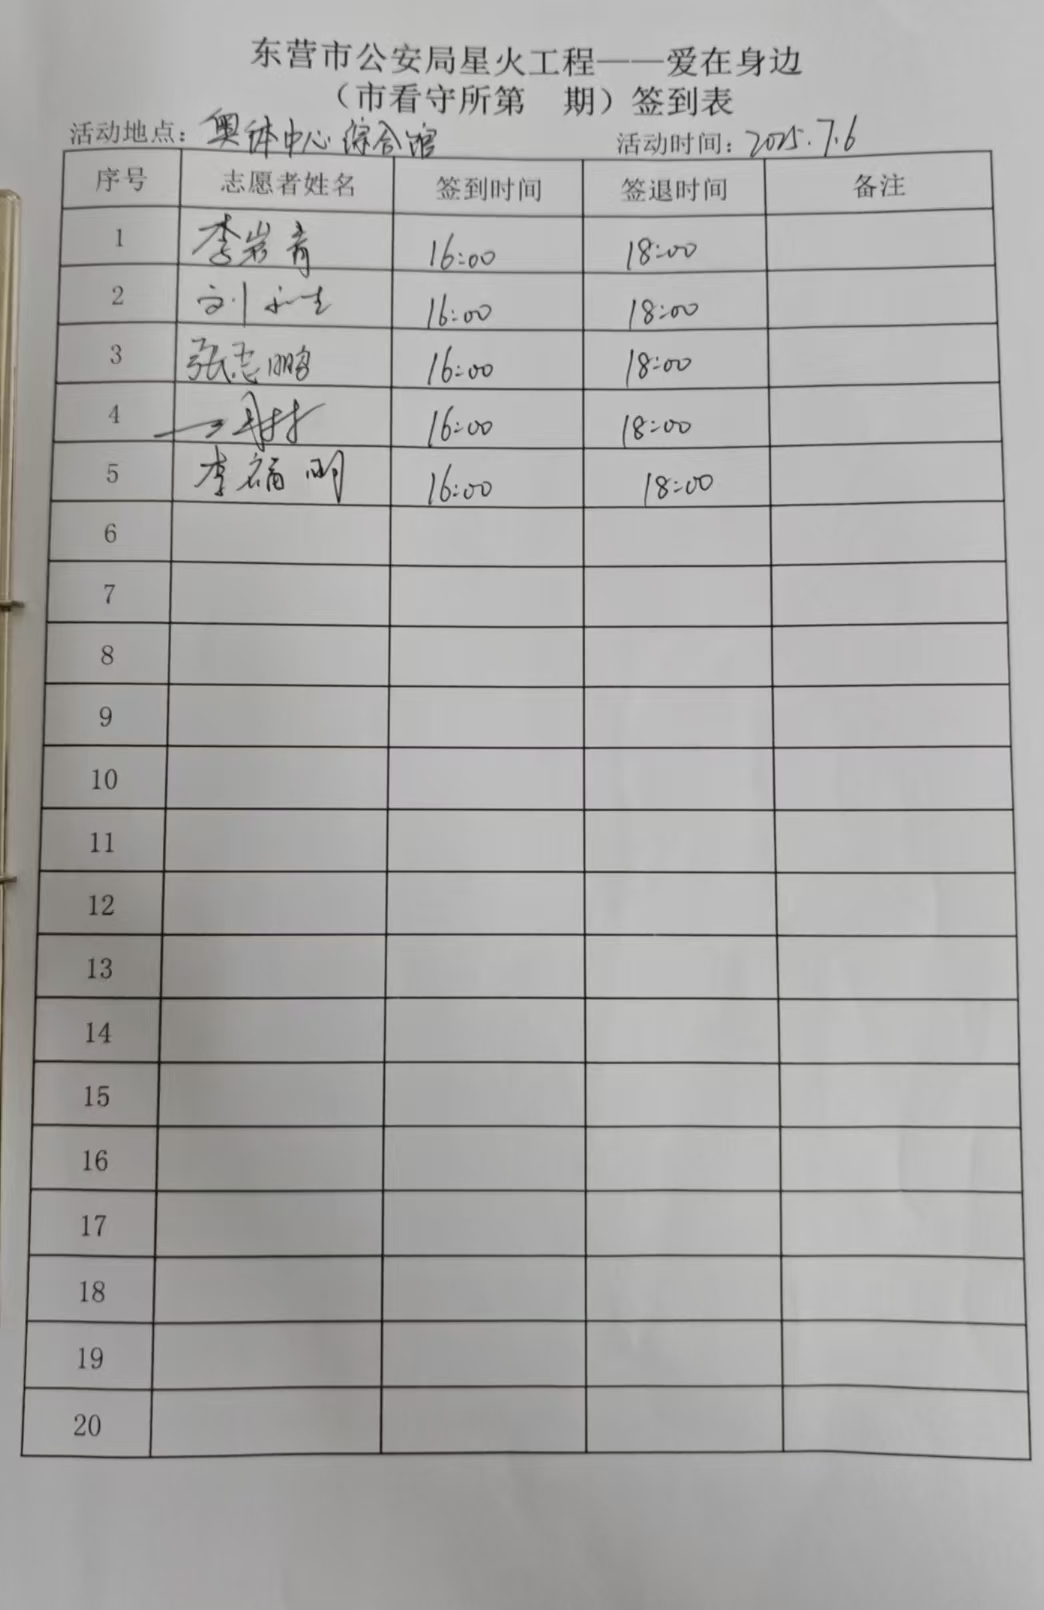 东营市公安局星火工程——爱在身边
（市看守所第 期）签到表
活动地点：奥体中心综合馆 活动时间：2025.7.6
序号 志愿者姓名 签到时间 签退时间 备注
1 李岩青 16:00 18:00
2 刘永生 16:00 18:00
3 张志鹏 16:00 18:00
4 16:00 18:00
5 李福明 16:00 18:00
6
7
8
9
10
11
12
13
14
15
16
17
18
19
20